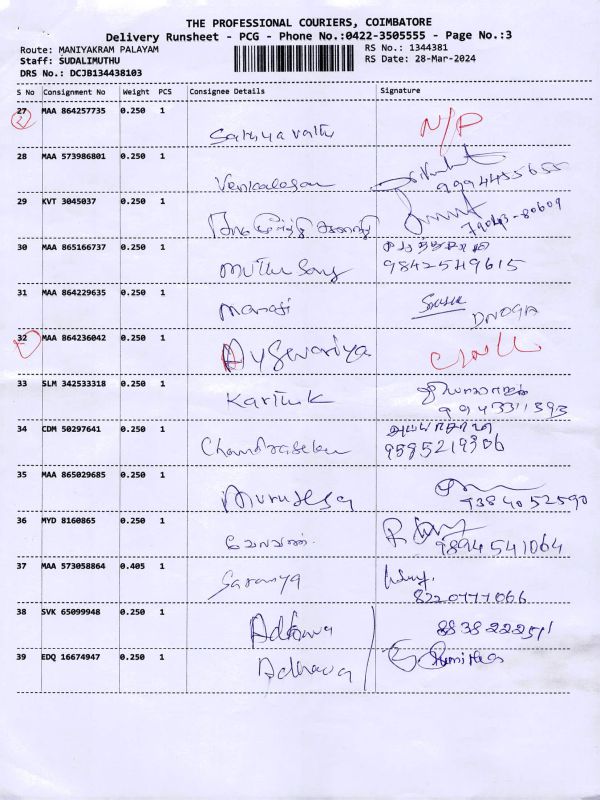 THE PROFESSIONAL COURIERS, COIMBATORE
Delivery Runsheet - PCG - Phone No.:0422-3505555 - Page No.:3
Route: MANIYAKRAM PALAYAM RS No.: 1344381
Staff: SUDALIMUTHU RS Date: 28-Mar-2024
DRS No.: DCJB134438103
S No Consignment No Weight PCS Consignee Details Signature
27 MAA 864257735 0.250 1
Sathyavathi N/P
28 MAA 573986801 0.250 1
Venkatesan 9994455655
29 KVT 3045037 0.250 1
79043-80609
30 MAA 865166737 0.250 1
Muthu Samy 9842549615
31 MAA 864229635 0.250 1
Manoji
32 MAA 864236042 0.250 1 Ayswariya
33 SLM 342533318 0.250 1
Karthik 9943311393
34 CDM 50297641 0.250 1
Chandrasekar 9585219306
35 MAA 865029685 0.250 1
Murugesa 9384052590
36 MYD 8160865 0.250 1
வேலவன். 9894541064
37 MAA 573058864 0.405 1
Saranya 8220777066
38 SVK 65099948 0.250 1
Adhava
39 EDQ 16674947 0.250 1
Adhava